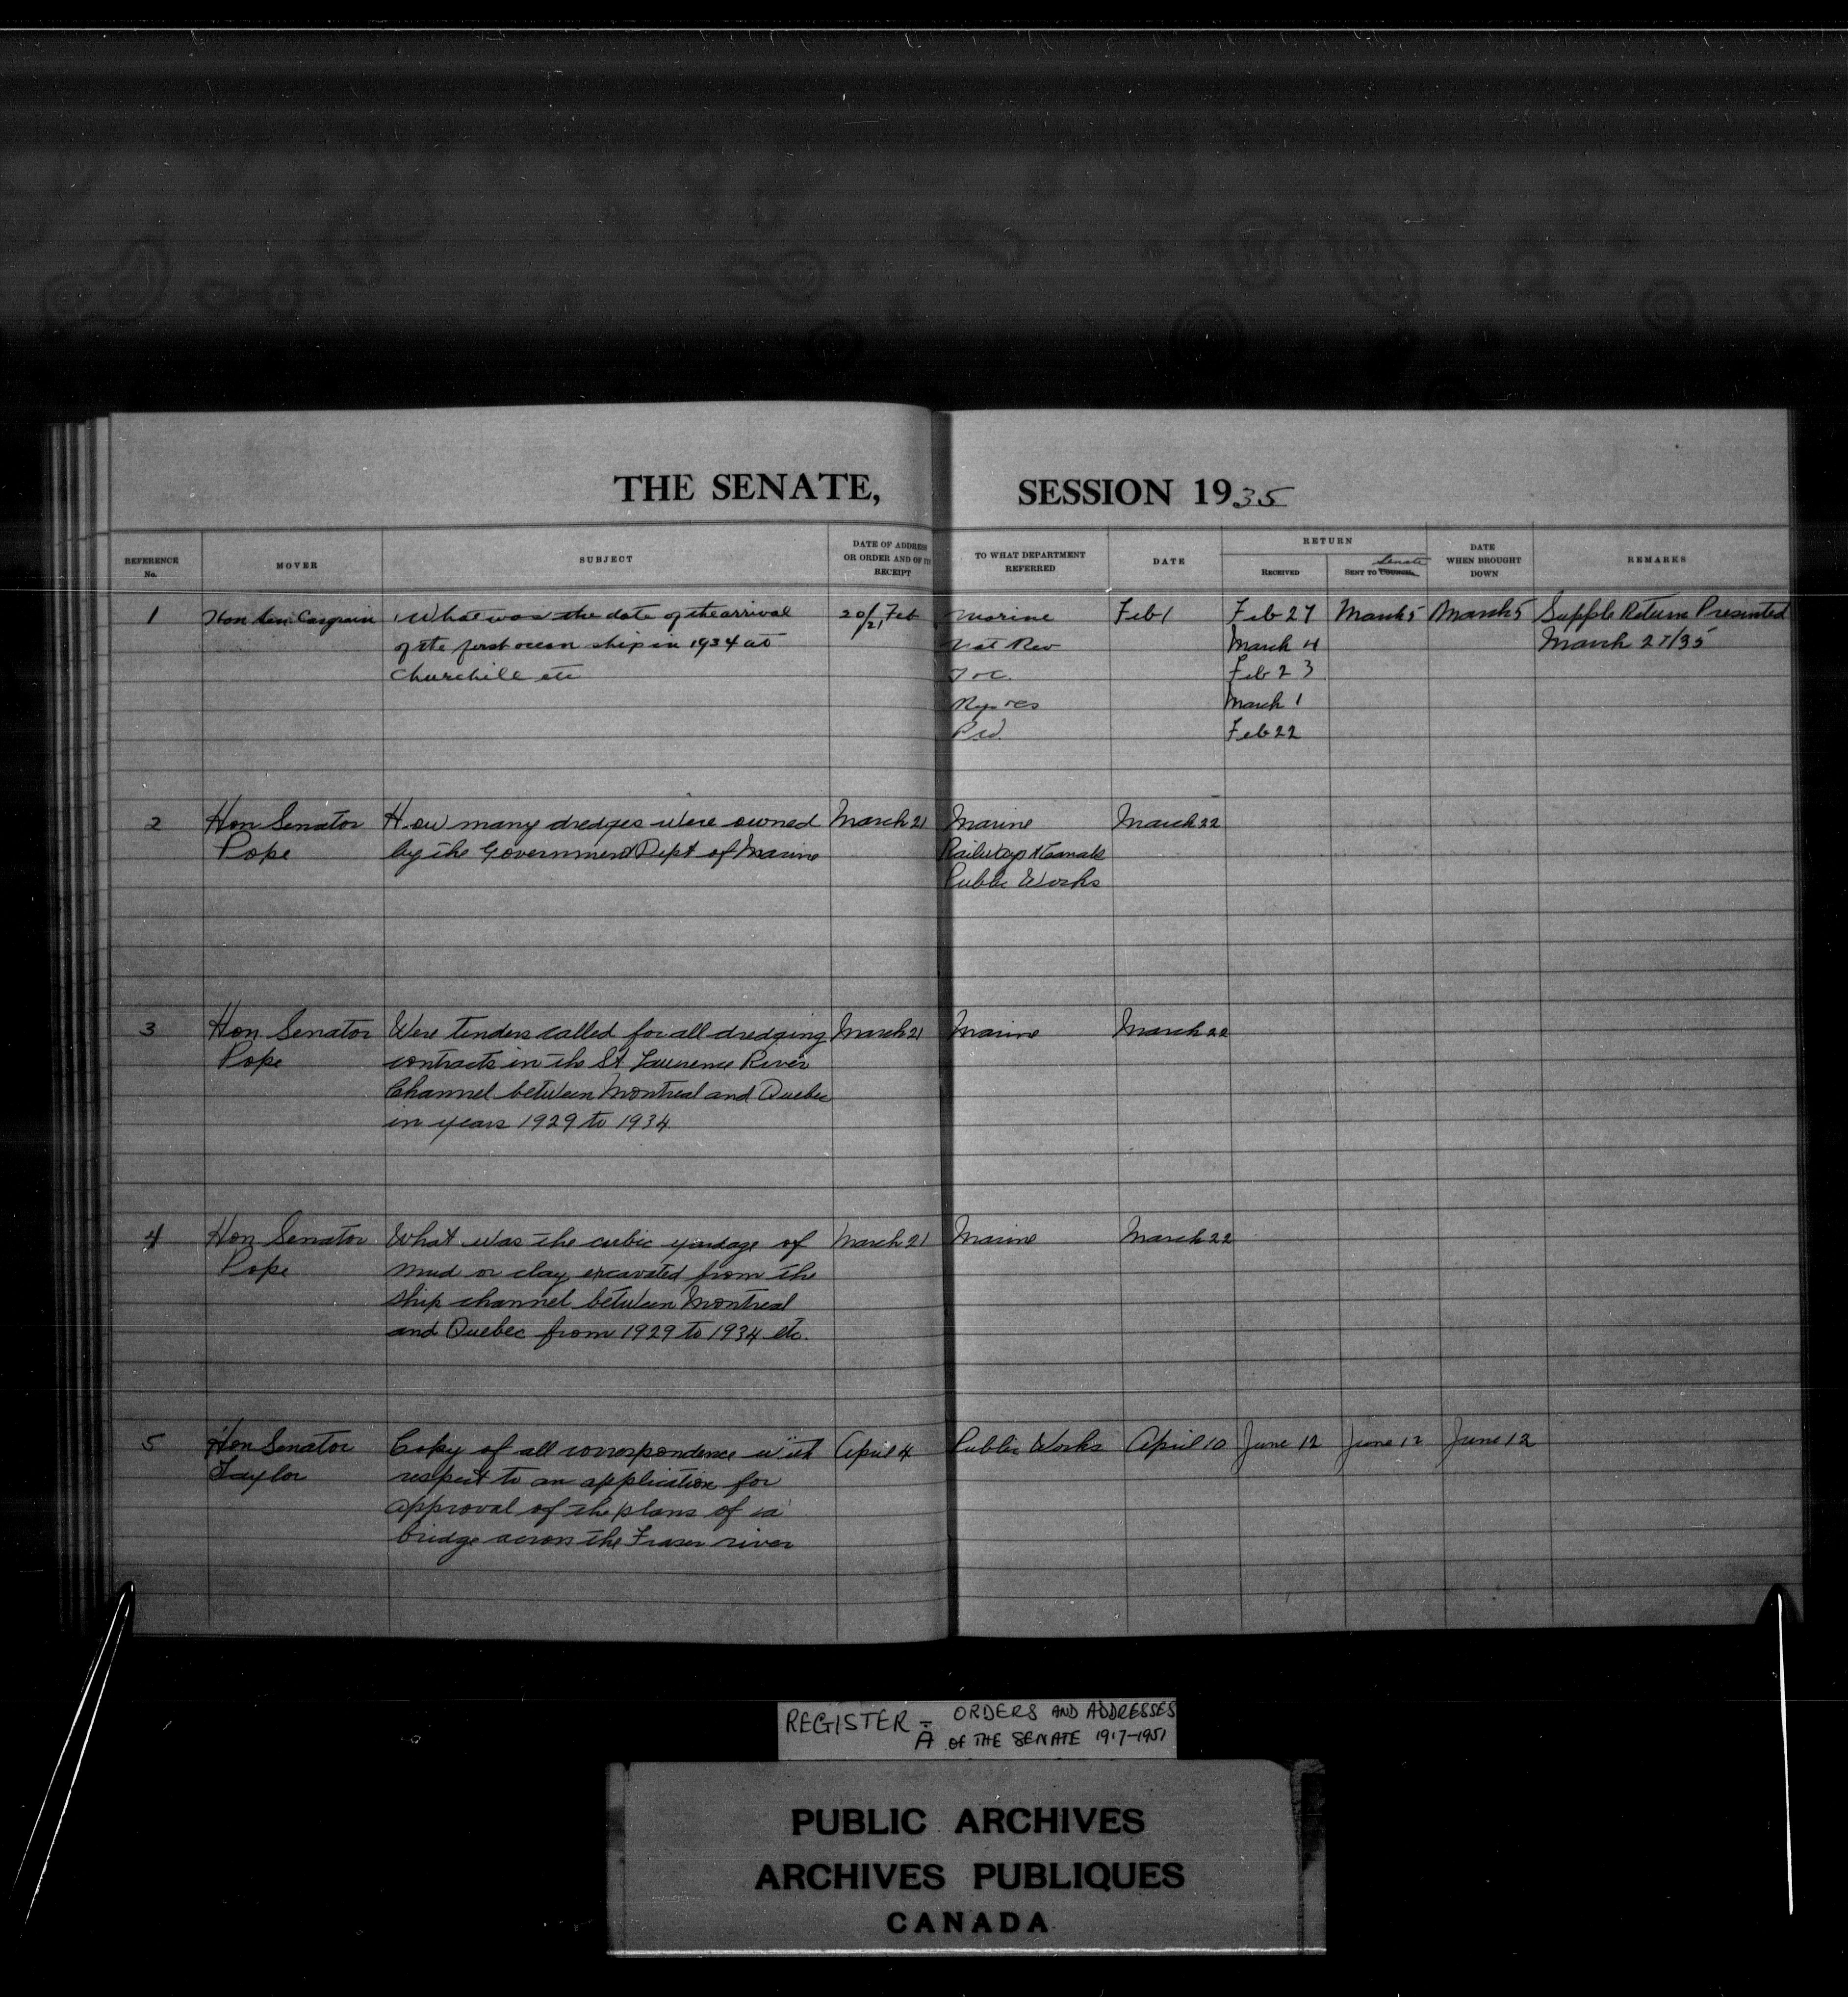 THE SENATE, SESSION 1935
REFERENCE No. MOVER SUBJECT DATE OF ADDRESS OR ORDER AND OF ITS RECEIPT TO WHAT DEPARTMENT REFERRED DATE RETURN RECEIVED SENT TO COUNCIL Senate DATE WHEN BROUGHT DOWN REMARKS
1 Hon Sen. Casgrain What was the date of the arrival 20/21 Feb Marine Feb 1 Feb 27 March 5 March 5 Supple Return Presented
of the first ocean ship in 1934 at Nat Rev March 4 March 27/35
Churchill etc T & C Feb 23
March 1
Feb 22
2 Hon Senator How many dredges were owned March 21 Marine March 22
Pope by the Government Dept of Marine Railways & Canals
Public Works
3 Hon Senator Were tenders called for all dredging March 21 Marine March 22
Pope contracts in the St Lawrence River
Channel between Montreal and Quebec
in years 1929 to 1934
4 Hon Senator What was the cubic yardage of March 21 Marine March 22
Pope mud or clay excavated from the
ship channel between Montreal
and Quebec from 1929 to 1934 etc.
5 Hon Senator Copy of all correspondence with April 4 Public Works April 10 June 12 June 12 June 12
Taylor respect to an application for
approval of the plans of a
bridge across the Fraser river
REGISTER - ORDERS AND ADDRESSES
A OF THE SENATE 1917-1951
PUBLIC ARCHIVES
ARCHIVES PUBLIQUES
CANADA